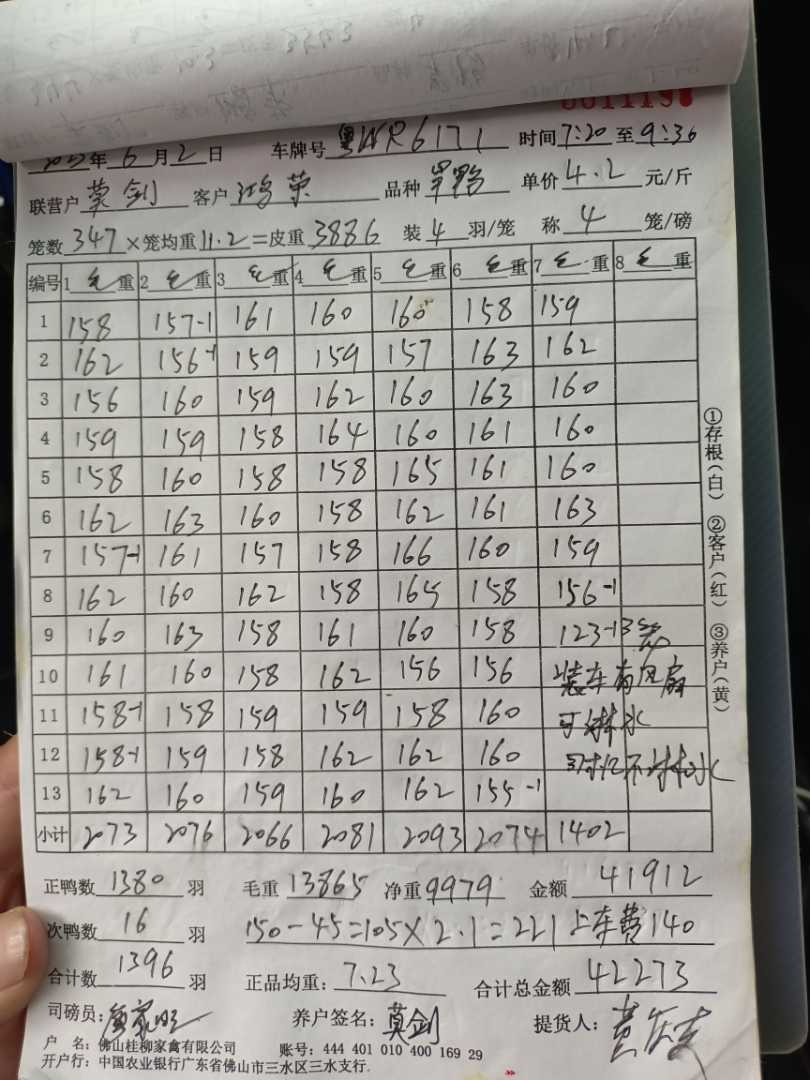 年6月2日 车牌号 粤WR6171 时间7:20至9:36
联营户 莫剑 客户 鸿荣 品种 单价4.2元/斤
笼数347×笼均重11.2=皮重3886 装4羽/笼 称4笼/磅
编号 1毛重 2毛重 3毛重 4毛重 5毛重 6毛重 7毛重 8毛重
1 158 157-1 161 160 160 158 159
2 162 156-1 159 159 157 163 162
3 156 160 159 162 160 163 160
4 159 159 158 164 160 161 160
5 158 160 158 158 165 161 160
6 162 163 160 158 162 161 163
7 157-1 161 157 158 166 160 159
8 162 160 162 158 165 158 156-1
9 160 163 158 161 160 158 123-1 3笼
10 161 160 158 162 156 156 装车有风扇
11 158-1 158 159 159 158 160 可淋水
12 158-1 159 158 162 162 160 不淋水
13 162 160 159 160 162 155-1
小计 2073 2076 2066 2081 2093 2074 1402
正鸭数1380羽 毛重13865 净重9979 金额41912
次鸭数16羽 150-45=105×2.1=221 上车费140
合计数1396羽 正品均重:7.23 合计总金额42273
司磅员: 养户签名:莫剑 提货人:
户 名:佛山桂柳家禽有限公司 账号:444 401 010 400 169 29
开户行:中国农业银行广东省佛山市三水区三水支行.
①存根(白) ②客户(红) ③养户(黄)